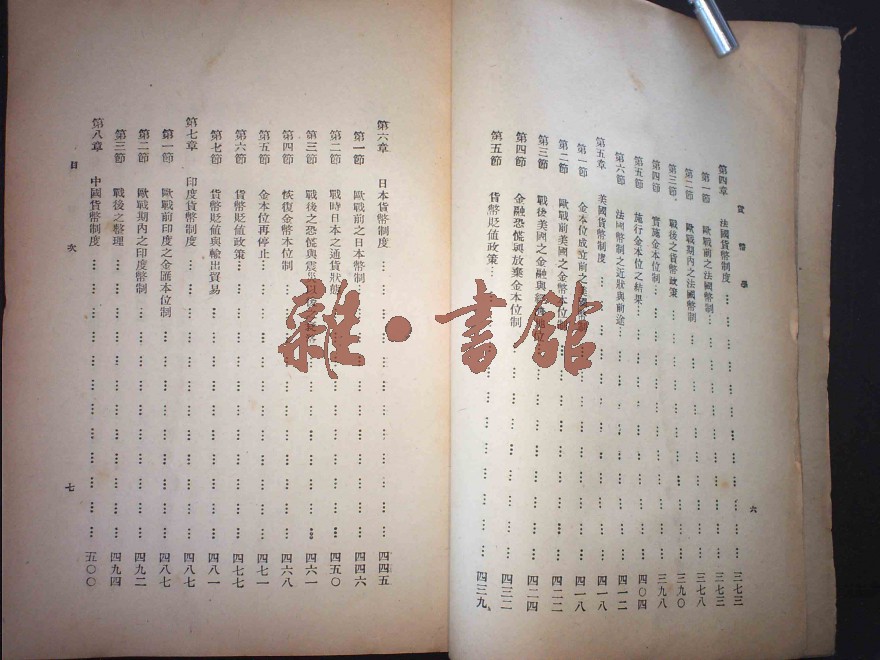 貨幣學
第四章 法國貨幣制度 三七三
第一節 歐戰前之法國幣制 三七三
第二節 歐戰期內之法國幣制 三七八
第三節 戰後之貨幣政策 三九〇
第四節 實施金本位制 三九八
第五節 施行金本位之結果 四〇四
第六節 法國幣制之近狀與前途 四一二
第五章 美國貨幣制度 四一八
第一節 金本位成立前之 幣制 四一八
第二節 歐戰前美國之金幣本位制 四二二
第三節 戰後美國之金融與經濟地位 四二四
第四節 金融恐慌與放棄金本位制 四三二
第五節 貨幣貶値政策 四三九
六
第六章 日本貨幣制度 四四五
第一節 歐戰前之日本幣制 四四六
第二節 戰時日本之通貨狀態 四五〇
第三節 戰後之恐慌與震災以後之 四六一
第四節 恢復金幣本位制 四六八
第五節 金本位再停止 四七一
第六節 貨幣貶値政策 四七七
第七節 貨幣貶値與輸出貿易 四八一
第七章 印度貨幣制度 四八七
第一節 歐戰前印度之金匯本位制 四八七
第二節 歐戰期內之印度幣制 四九二
第三節 戰後之整理 四九四
第八章 中國貨幣制度 五〇〇
目次
七
雜·書館